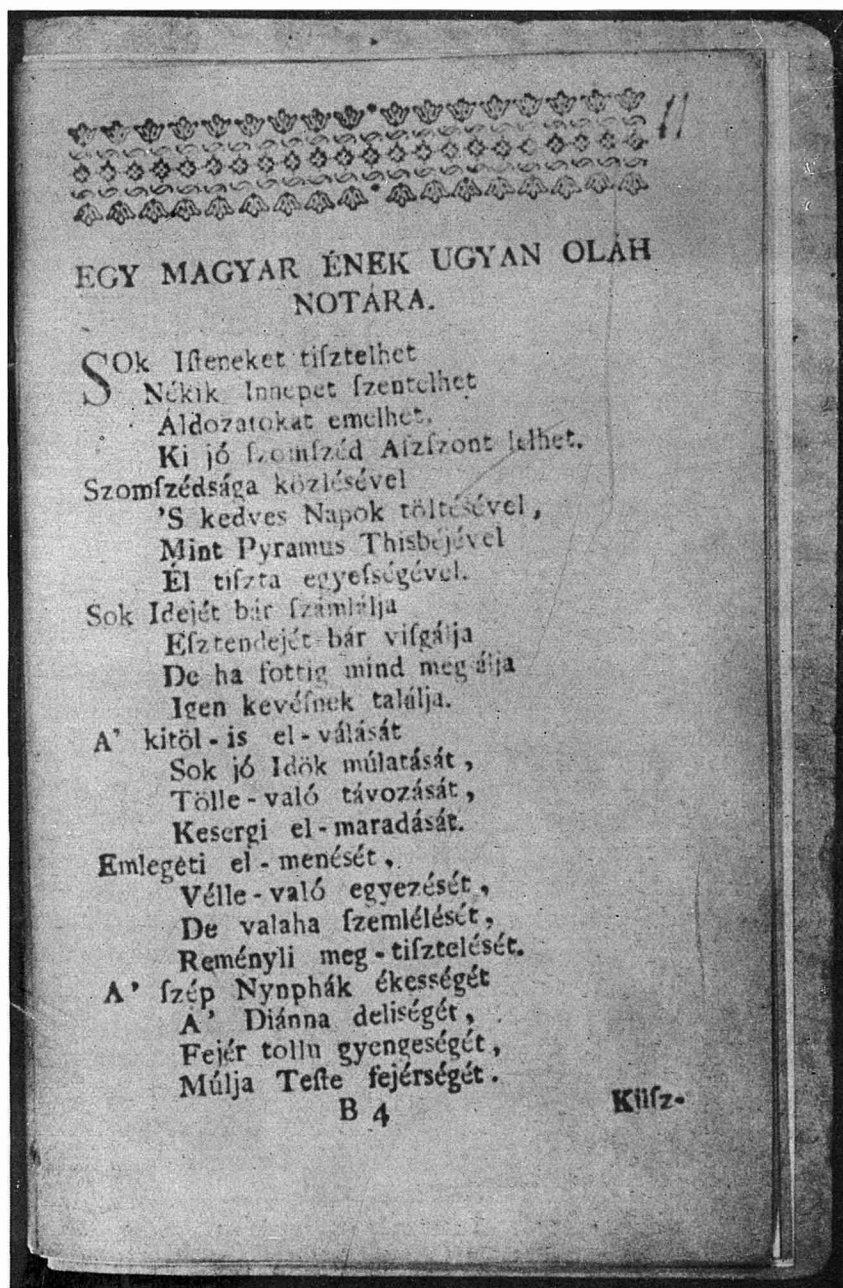 11
EGY MAGYAR ÉNEK UGYAN OLÁH
NOTÁRA.
SOk Iſteneket tiſztelhet
Nékik Innepet ſzentelhet
Áldozatokat emelhet,
Ki jó ſzomſzéd Aſzſzont lelhet.
Szomſzédsága közlésével
'S kedves Napok töltésével,
Mint Pyramus Thisbéjével
Él tiſzta egyeſségével.
Sok Idejét bár ſzámlálja
Eſztendejét bár viſgálja
De ha ſottig mind meg álja
Igen kevéſnek találja.
A' kitöl-is el-válását
Sok jó Idök múlatását,
Tölle-való távozását,
Kesergi el-maradását.
Emlegéti el-menését,
Vélle-való egyezését,
De valaha ſzemlélését,
Reményli meg-tiſztelését.
A' ſzép Nynphák ékességét
A' Diánna deliségét,
Fejér tollu gyengeségét,
Múlja Teſte fejérségét.
B 4 Küſz-